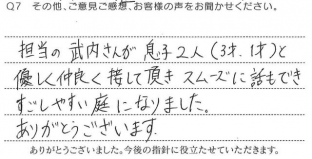 Q7 その他、ご意見ご感想、お客様の声をお聞かせください。
担当の武内さんが息子2人(3才、1才)と
優しく仲良く接して頂きスムーズに話もでき
すごしやすい庭になりました。
ありがとうございます.
ありがとうございました。今後の指針に役立たせていただきます。